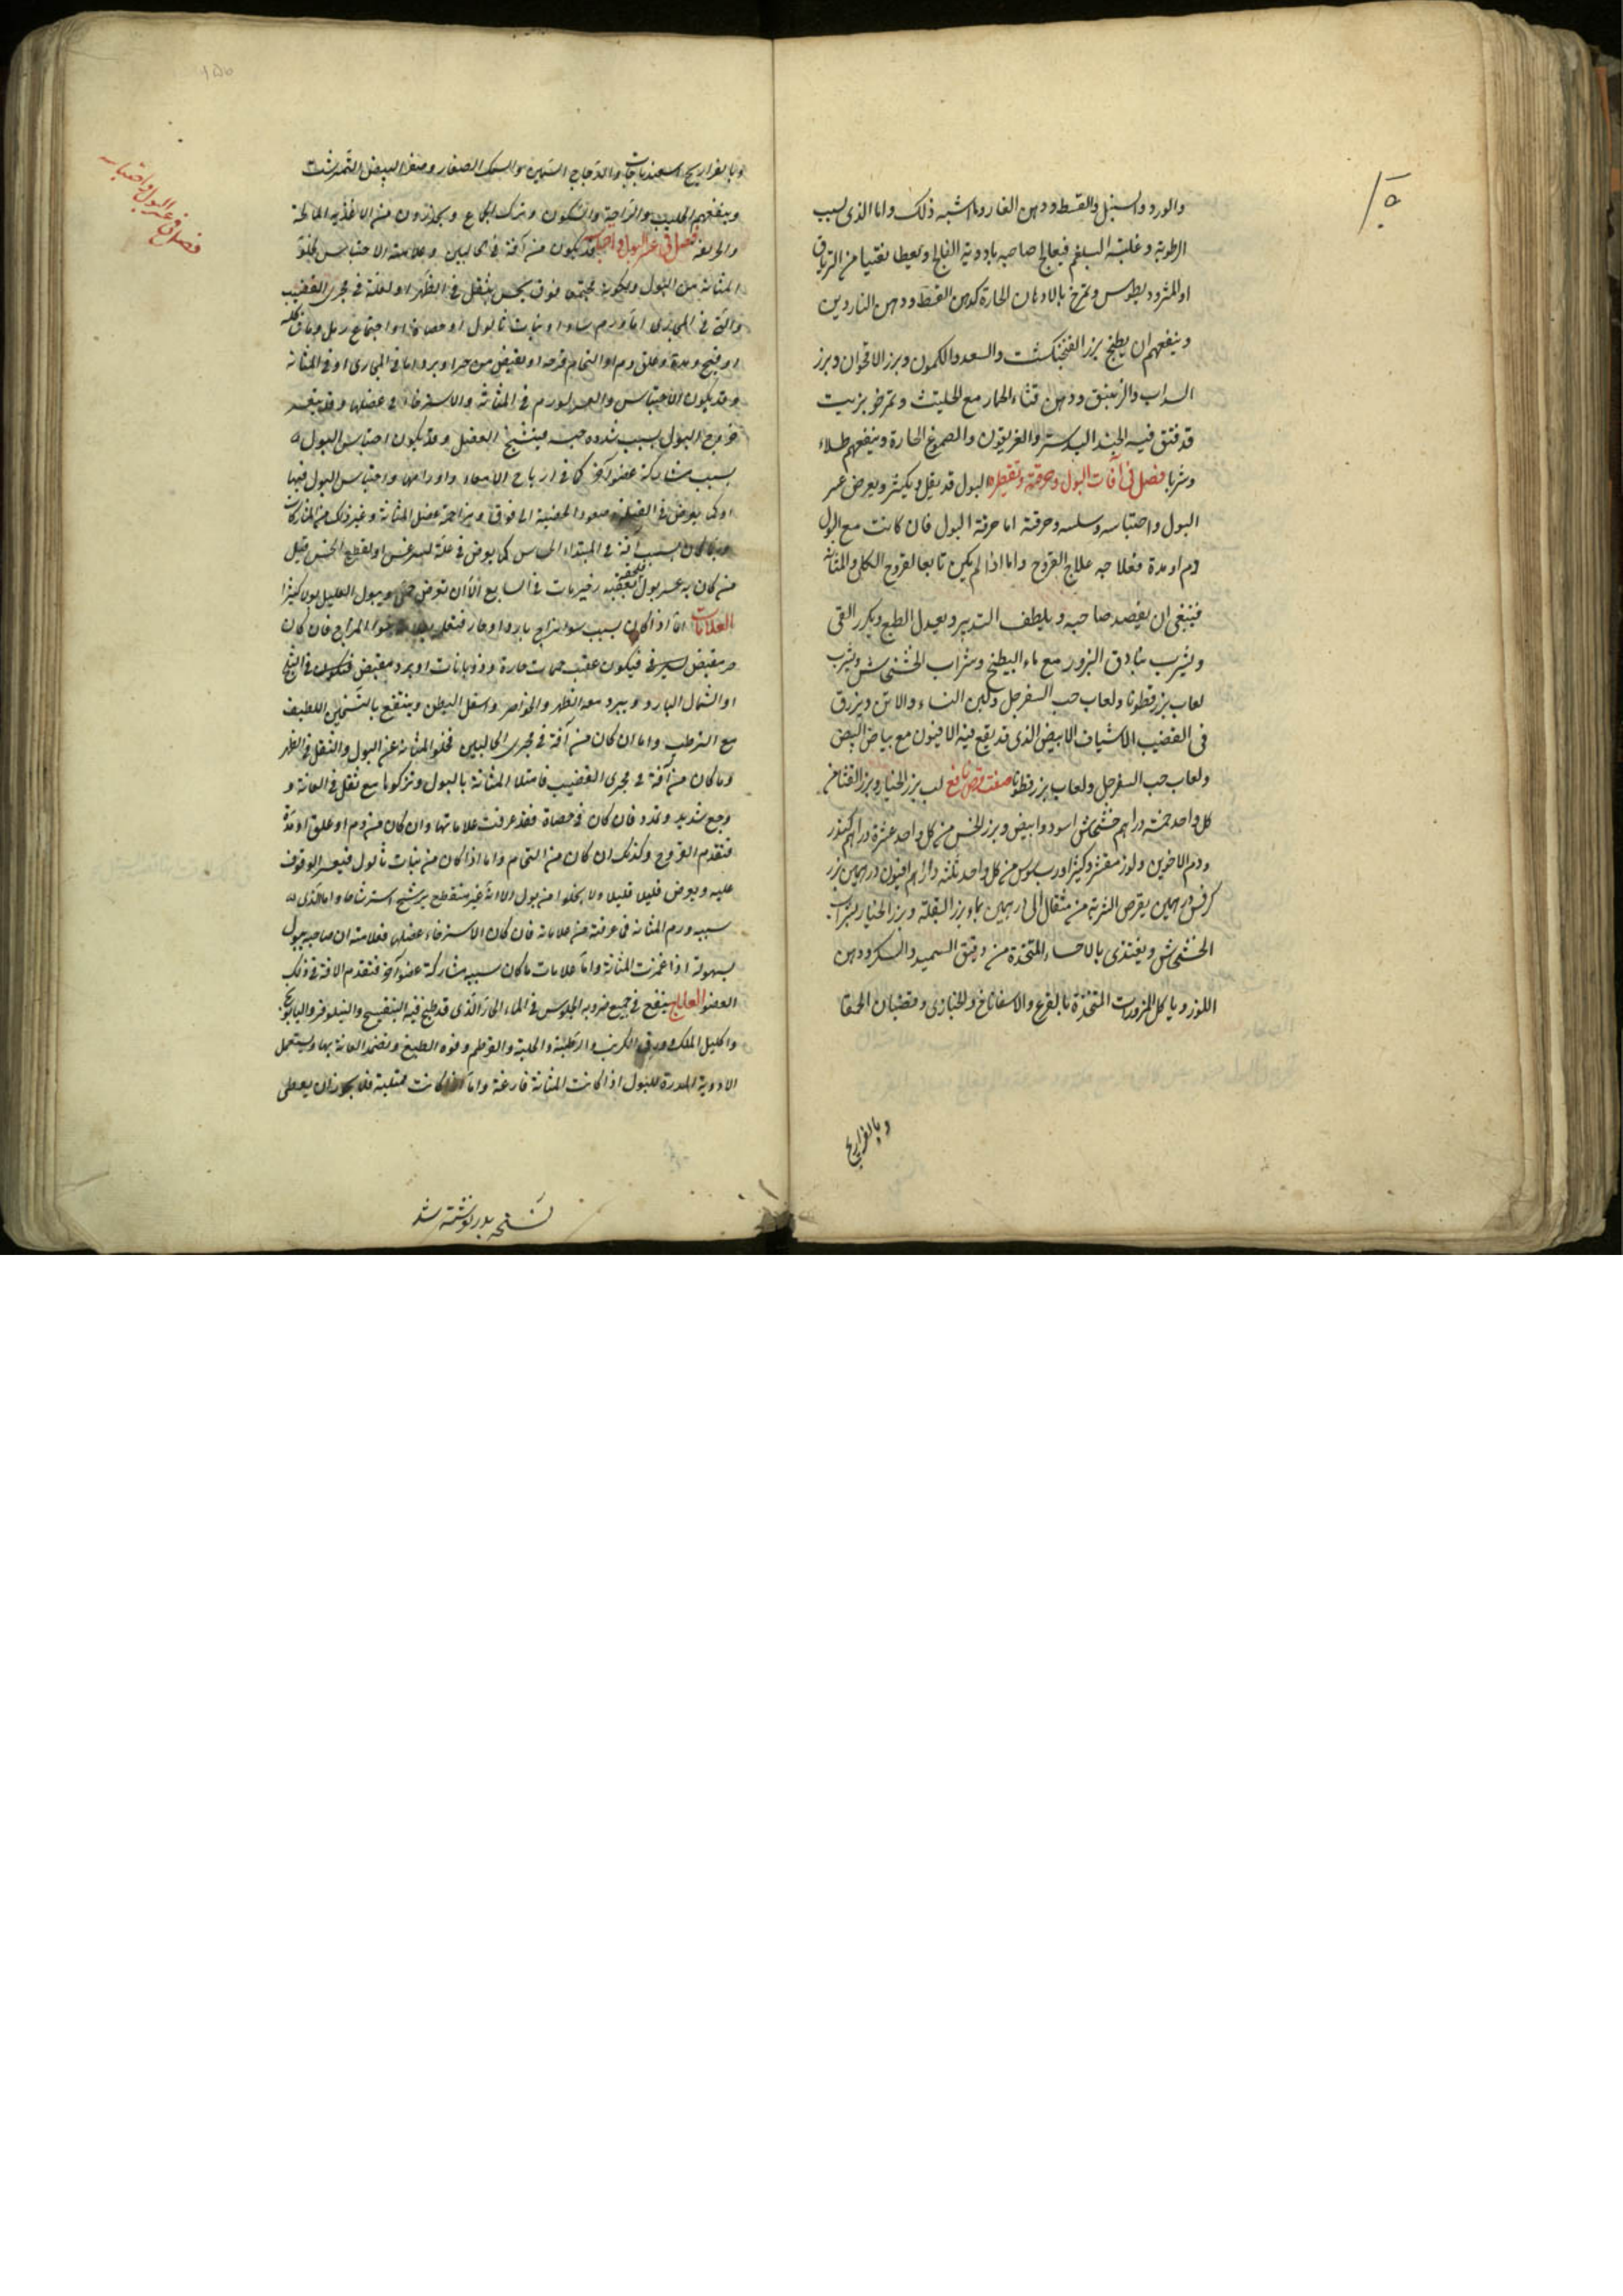 والورد والسنبل والقسط ودهن الغار وما اشبه ذلك واما الذى بسبب
الرطوبة وغلبة البلغم فيعالج صاحبه بادوية الفالج ويعطا نقتيا من الترياق
او المثروديطوس وتمرخ بالادهان الحارة كدهن القسط ودهن الناردين
وينفعهم ان يطبخ بزر الفنجنكشت والسعد والكمون وبزر الاقحوان وبزر
السداب والزنبق ودهن قثاء الحمار مع الحلتيث وتمرخ بزيت
قد فتق فيه الجندبيدستر والفربيون والصموغ الحارة وينفعهم طلاء
وشربا فصل فى آفات البول وحرقته وتقطيره البول قد يقل ويكثر ويعرض عسر
البول واحتباسه وسلسه وحرقته اما حرقة البول فان كانت مع البول
دم او مدة فعلاجه علاج القروح واما اذا لم يكن تابعا لقروح الكلى والمثانة
فينبغى ان يفصد صاحبه ويلطف التدبير ويعدل الطبع ويكرر القى
ويشرب بنادق البزور مع ماء البطيخ وشراب الخشخاش ويشرب
لعاب بزرقطونا ولعاب حب السفرجل ولبن النساء والاتن ويزرق
فى القضيب الاشياف الابيض الذى قد يقع فيه الافيون مع بياض البيض
ولعاب حب السفرجل ولعاب بزرقطونا صفت قرص نافع لب بزر الخيار وبزر القثا من
كل واحد خمسة دراهم خشخاش اسود وابيض وبزر الخس من كل واحد عشرة دراهم كندر
ودم الاخوين ولوز مقشر وكثيرا ورب سوس من كل واحد ثلثة دراهم افيون درهمين بزر
كرفس درهمين يقرص الشربة من مثقال الى درهمين بماء بزر البقلة وبزر الخيار بشراب
الخشخاش ويغتذى بالاحساء المتخذة من دقيق السميد والسكر ودهن
اللوز وياكل المزورات المتخذة بالقرع والاسفاناخ والخبازى وقضبان الحمقا
وبالفراريج
وبالفراريج اسفيدباجات والدجاج السمين والسمك الصغار وصفرة البيض النيمرشت
وينفعهم الحليب والراحة والسكون وترك الجماع ويحذرون من الاغذية المالحة
والحريفة فصل فى عسر البول واحتباسه قد يكون من آفة فى الحالبين وعلامة الاحتباس بخلو
المثانة من البول ويكون محتبسا فوق يحس بثقل فى الظهر او لعلة فى مجرى القضيب
والآفة فى المجرى اما ورم ساد او نبات ثالول او حصاة او اجتماع رمل
او قيح ومدة وعلق دم او التحام قرحة او بقبض من حر او برد اما فى المجارى او فى المثانة
وقد يكون الاحتباس والعسر لورم فى المثانة والاسترخاء فى عضلها وقد يعسر
خروج البول بسبب شدة حبسه فيتشنج العضل وقد يكون احتباس البول
بسبب مشاركة عضو آخر كما فى ارياح الامعاء واورامها واحتباس البول فيها
او كما يعرض فى صعود الخصية الى فوق ومزاحمة عضل المثانة وغير ذلك من المشاركات
وربما كان السبب آفة فى المبتداء الحاس كما يعرض فى علة ليثرغس او لقطع الحس قيل
من كان به عسر بول فيعقبه زحير مات فى السابع الا ان تعرض حمى ويبول العليل بولا كثيرا
العلامات اما اذا كان بسبب سوء مزاج بارد او حار المزاج فان كان
فيكون عقب حميات حارة وذوبانات او برد مقبض فيكون فى الثلج
او الشمال البارد ويبرد معه الظهر والخواصر واسفل البطن وينتفع بالتسخين اللطيف
مع الترطيب واما ان كان من آفة فى مجرى الحالبين فخلو المثانة عن البول والثقل فى الظهر
وما كان من آفة فى مجرى القضيب فامتلا المثانة بالبول وتركزها مع ثقل فى العانة و
وجع شديد وتمدد فان كان من حصاة فقد عرفت علاماتها وان كان من دم او علق او مدة
فتقدم القروح وكذلك ان كان من التحام واما اذا كان من نبات ثالول فيعسر الوقوف
عليه ويعرض قليلا قليلا ولا يخلو من بول الا انه غير منقطع يرشح استرشاحا واما الذى
سببه ورم المثانة فى عرفته من علاماته فان كان الاسترخاء عضلها فعلامته ان صاحبه يبول
بسهولة اذا غمزت المثانة واما علامات ما كان سببه مشاركة عضو آخر فتقدم الافة فى ذلك
العضو العلاج ينفع فى جميع ضروبه الجلوس فى الماء الحار الذى قد طبخ فيه البنفسج والنيلوفر والبابونج
واكليل الملك وورق الكرنب والرطبة والحلبة والقرطم وفوه الطيبخ وتضمد العانة بها ويستعمل
الادوية المدرة للبول اذا كانت المثانة فارغة واما اذا كانت ممتلية فلا يجوز ان يعطى
فصل فى عسر البول واحتباسه